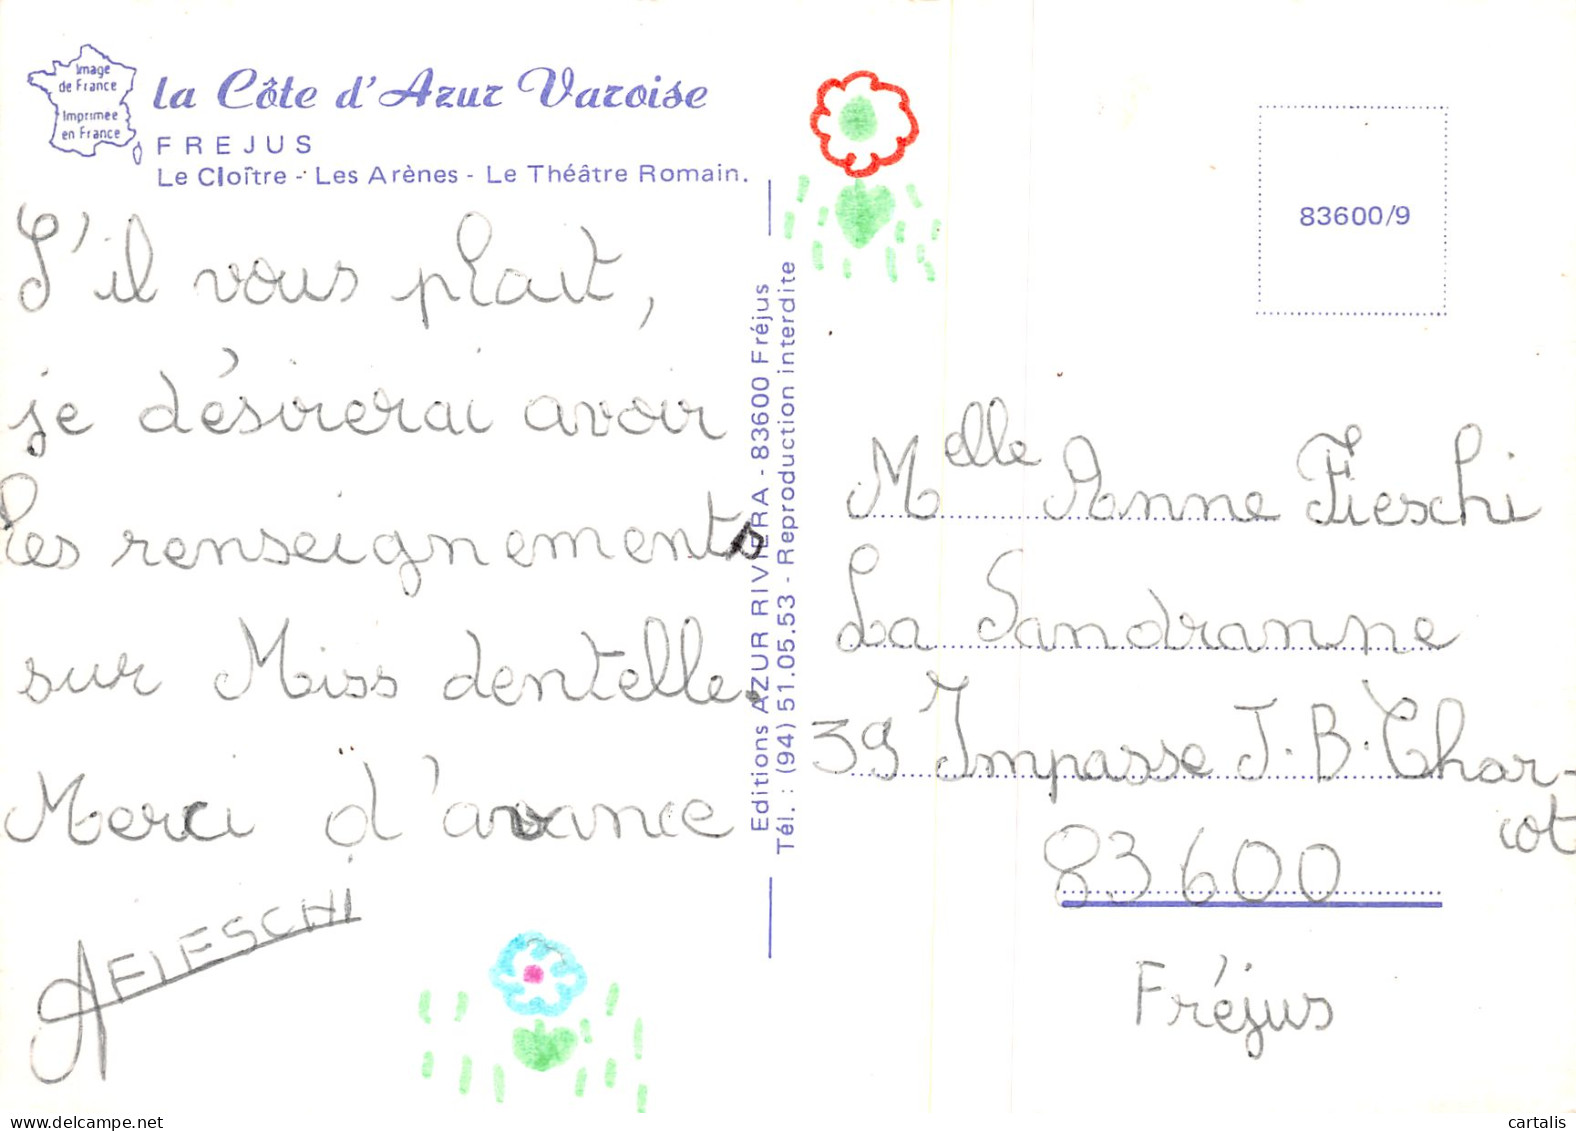 Image
de France
Imprimée
en France
la Côte d'Azur Varoise
FREJUS
Le Cloître - Les Arènes - Le Théâtre Romain.
S'il vous plait,
je désirerai avoir
les renseignements
sur Miss dentelle.
Merci d'avance
A FIESCHI
Editions AZUR RIVIERA - 83600 Fréjus
Tél. : (94) 51.05.53 - Reproduction interdite
83600/9
Melle Anne Fieschi
La Sandranne
39 Impasse J.B. Char-
cot
83600
Fréjus
delcampe.net
cartalis